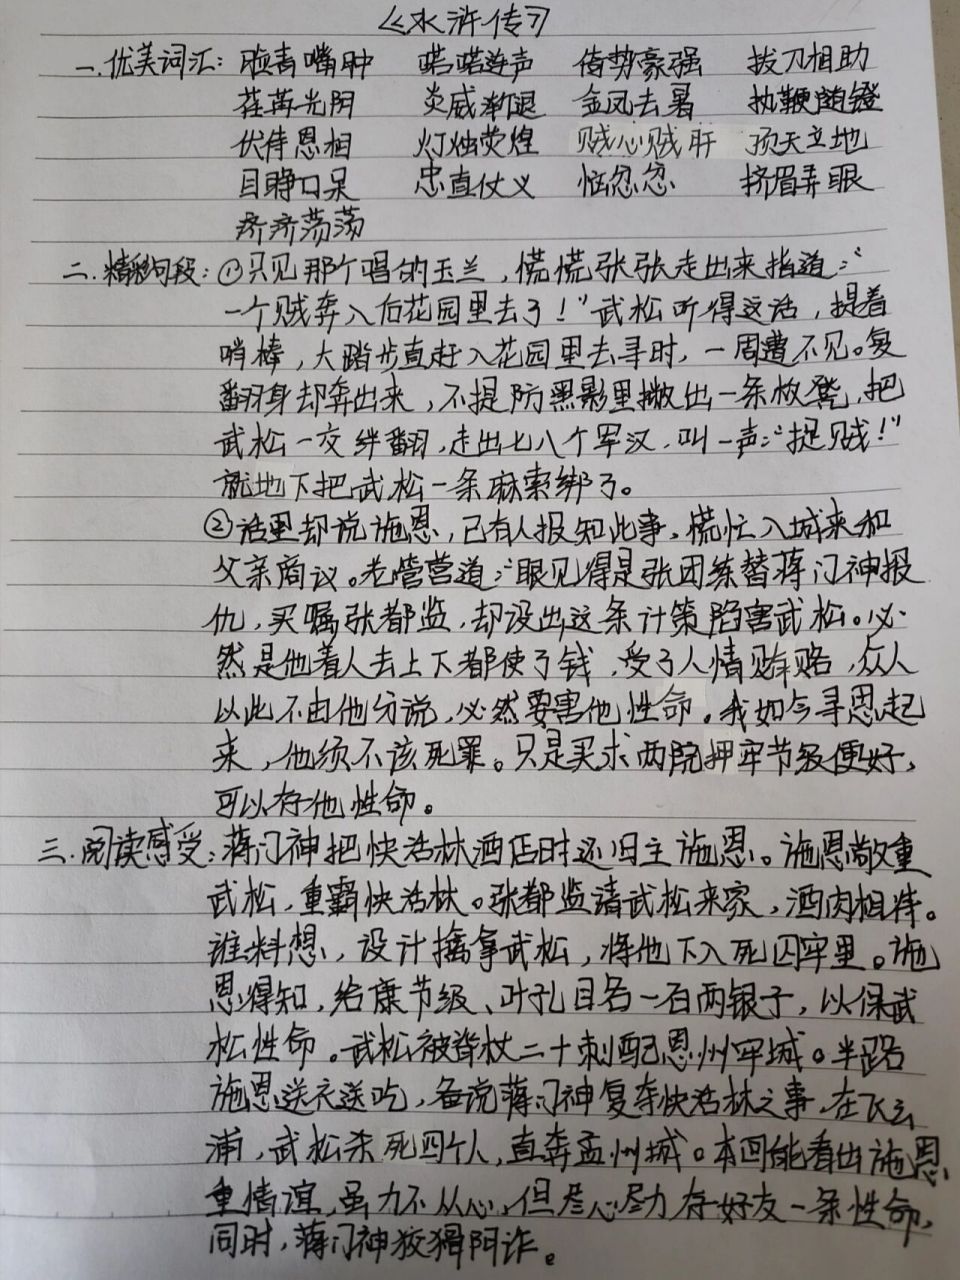 《水浒传》
一.优美词汇: 脸青嘴肿 喏喏连声 倚势豪强 拔刀相助
荏苒光阴 炎威渐退 金风去暑 执鞭随镫
伏侍恩相 灯烛荧煌 贼心贼肝 顶天立地
目睁口呆 忠直仗义 恼忿忿 挤眉弄眼
疥疥荡荡
二.精彩句段:①只见那个唱的玉兰,慌慌张张走出来指道:“
一个贼奔入后花园里去了!”武松听得这话,提着
哨棒,大踏步直赶入花园里去寻时,一周遭不见。复
翻身却奔出来,不提防黑影里撇出一条板凳,把
武松一交绊翻,走出七八个军汉,叫一声:“捉贼!”
就地下把武松一条麻索绑了。
②话里却说施恩,已有人报知此事,慌忙入城来和
父亲商议。老管营道:“眼见得是张团练替蒋门神报
仇,买嘱张都监,却设出这条计策陷害武松。必
然是他着人去上下都使了钱,受了人情贿赂,众人
以此不由他分说,必然要害他性命。我如今寻思起
来,他须不该死罪。只是买求两院押牢节级便好,
可以存他性命。
三.阅读感受:蒋门神把快活林酒店时还旧主施恩。施恩敬重
武松,重霸快活林。张都监请武松来家,酒肉相待。
谁料想,设计擒拿武松,将他下入死囚牢里。施
恩得知,给康节级、叶孔目各一百两银子,以保武
松性命。武松被脊杖二十刺配恩州牢城。半路
施恩送衣送吃,备说蒋门神复夺快活林之事,在飞云
浦,武松杀死四个人,直奔孟州城。本回能看出施恩
重情谊,虽力不从心,但尽心尽力存好友一条性命,
同时,蒋门神狡猾阴诈。